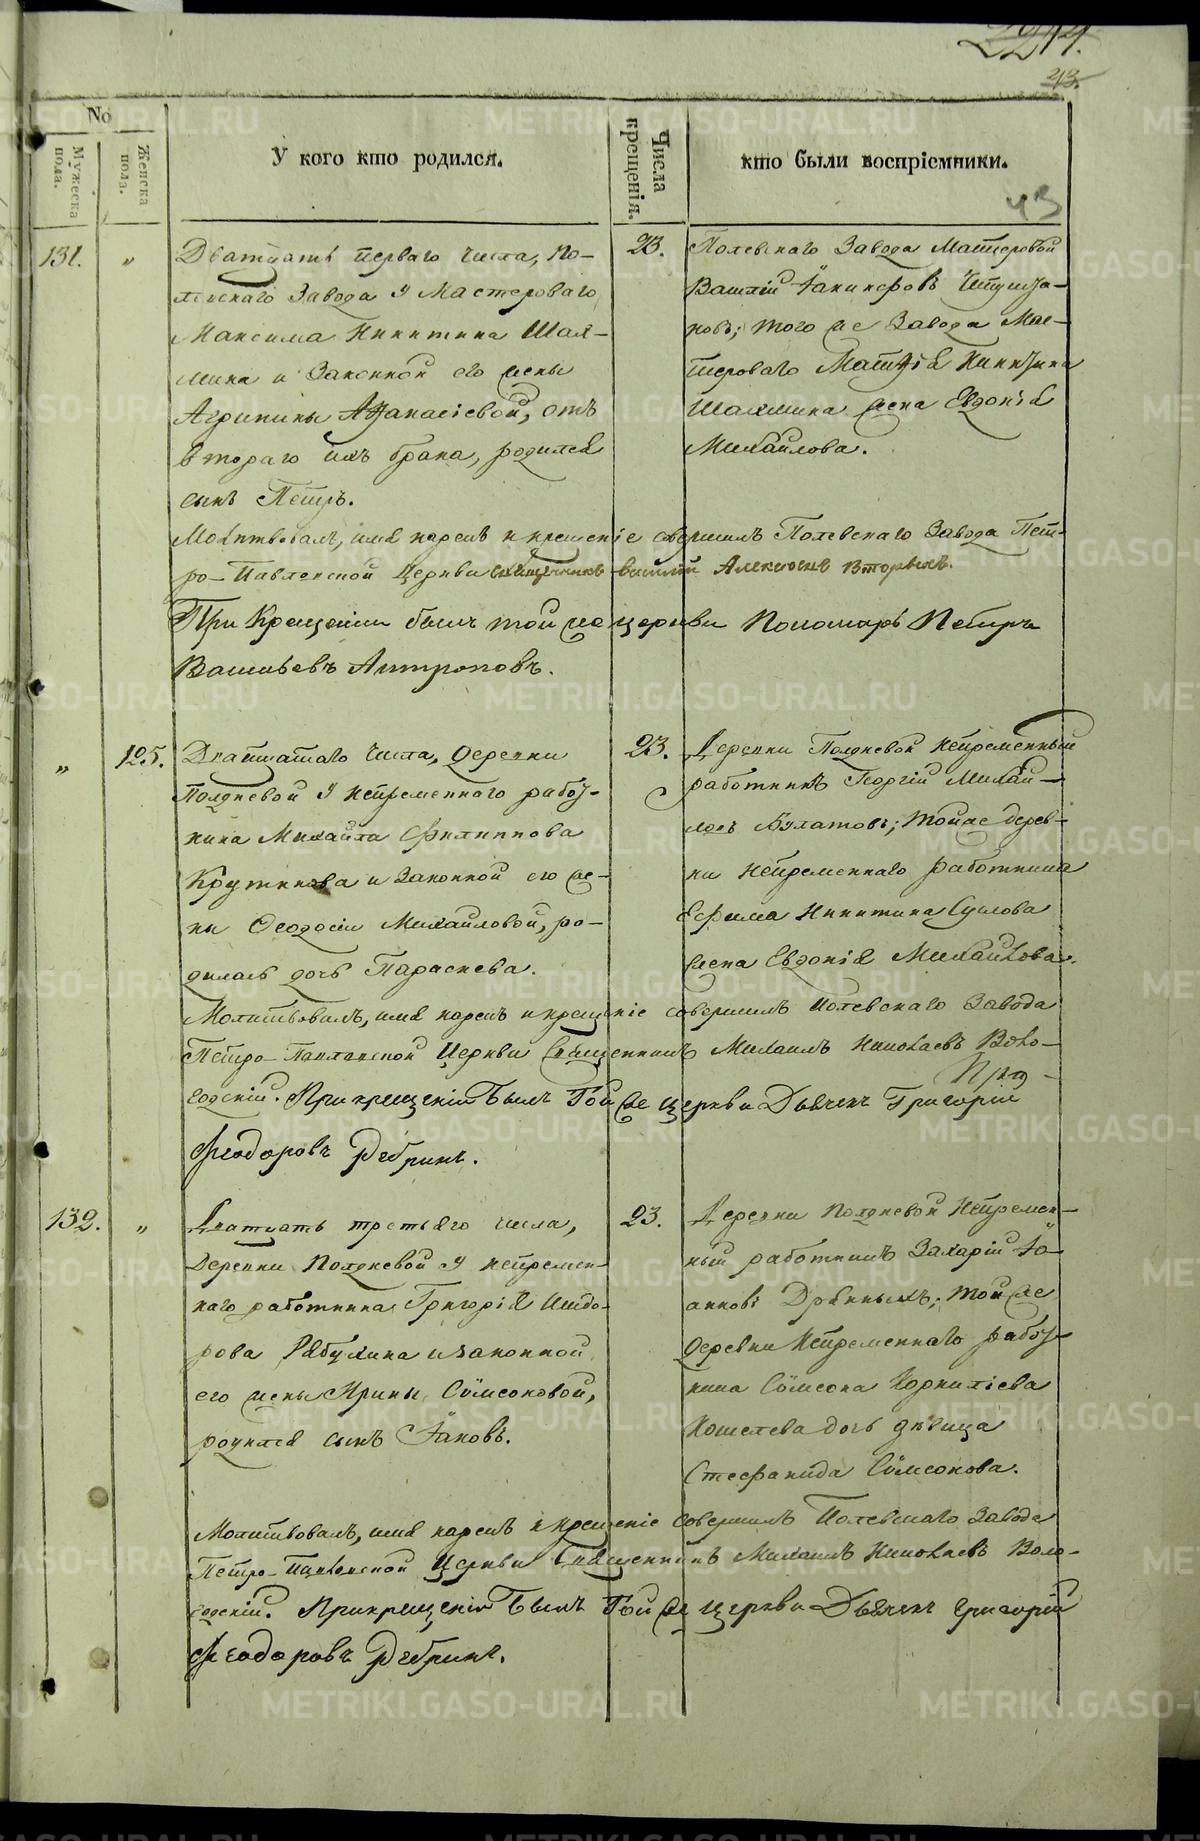 2244.
43.
No
Мужеска пола.
Женска пола.
У кого кто родился.
Числа крещенія.
кто были воспріемники.
43
131. „ Дватцать перваго числа, По-
левскаго Завода у Мастероваго
Максима Никитина Шал-
мина и Законной его жены
Агрипины Афанасіевой, отъ
втораго ихъ брака, родился
сынъ Петръ.
23.
Полевскаго Завода Мастеровой
Василій
новъ; того же Завода Мас-
тероваго Матфія Никитина
Шалмина жена Евдокія
Михайлова.
Молитвовалъ, имя нарекъ и крещеніе совершилъ Полевскаго Завода Пет-
ро-Павловской Церкви Священникъ Василій Алексѣевъ Вторыхъ.
При Крещеніи былъ той же церкви Пономарь Петръ
Васильевъ Антроповъ.
„ 125. Дватцатаго числа, деревни
Полдневой у непременнаго работ-
ника Михайла Филиппова
Крутикова и Законной его же-
ны Феодосіи Михайловой, ро-
дилась дочь Параскева.
23.
Деревни Полдневой непременный
работникъ Георгій Михай-
ловъ Булатовъ; тойже дерев-
ни непременнаго работника
Ефима Никитина Суслова
жена Евдокія Михайлова.
Молитвовалъ, имя нарекъ и крещеніе совершилъ Полевскаго Завода
Петро-Павловской Церкви Священникъ Михаилъ Николаевъ Воло-
При
годскій. При крещеніи былъ той же церкви Дьячекъ Григорій
Феодоровъ Рѣбринъ.
132. „ Дватцать третьяго числа,
Деревни Полдневой у непремен-
наго работника Григорія Исидо-
рова Рябухина и законной
его жены Ирины Сѵмеоновой,
родился сынъ Іаковъ.
23.
Деревни Полдневой Непремен-
ный работникъ Захарій Іо-
анновъ Дрянныхъ; той же
деревни Непременнаго работ-
ника Сѵмеона Корниліева
Кошелева дочь дѣвица
Стефанида Сѵмеонова.
Молитвовалъ, имя нарекъ и крещеніе совершилъ Полевскаго Завода
Петро-Павловской Церкви Священникъ Михаилъ Николаевъ Воло-
годскій. При крещеніи былъ той же церкви Дьячекъ Григорій
Феодоровъ Рѣбринъ.
METRIKI.GASO-URAL.RU